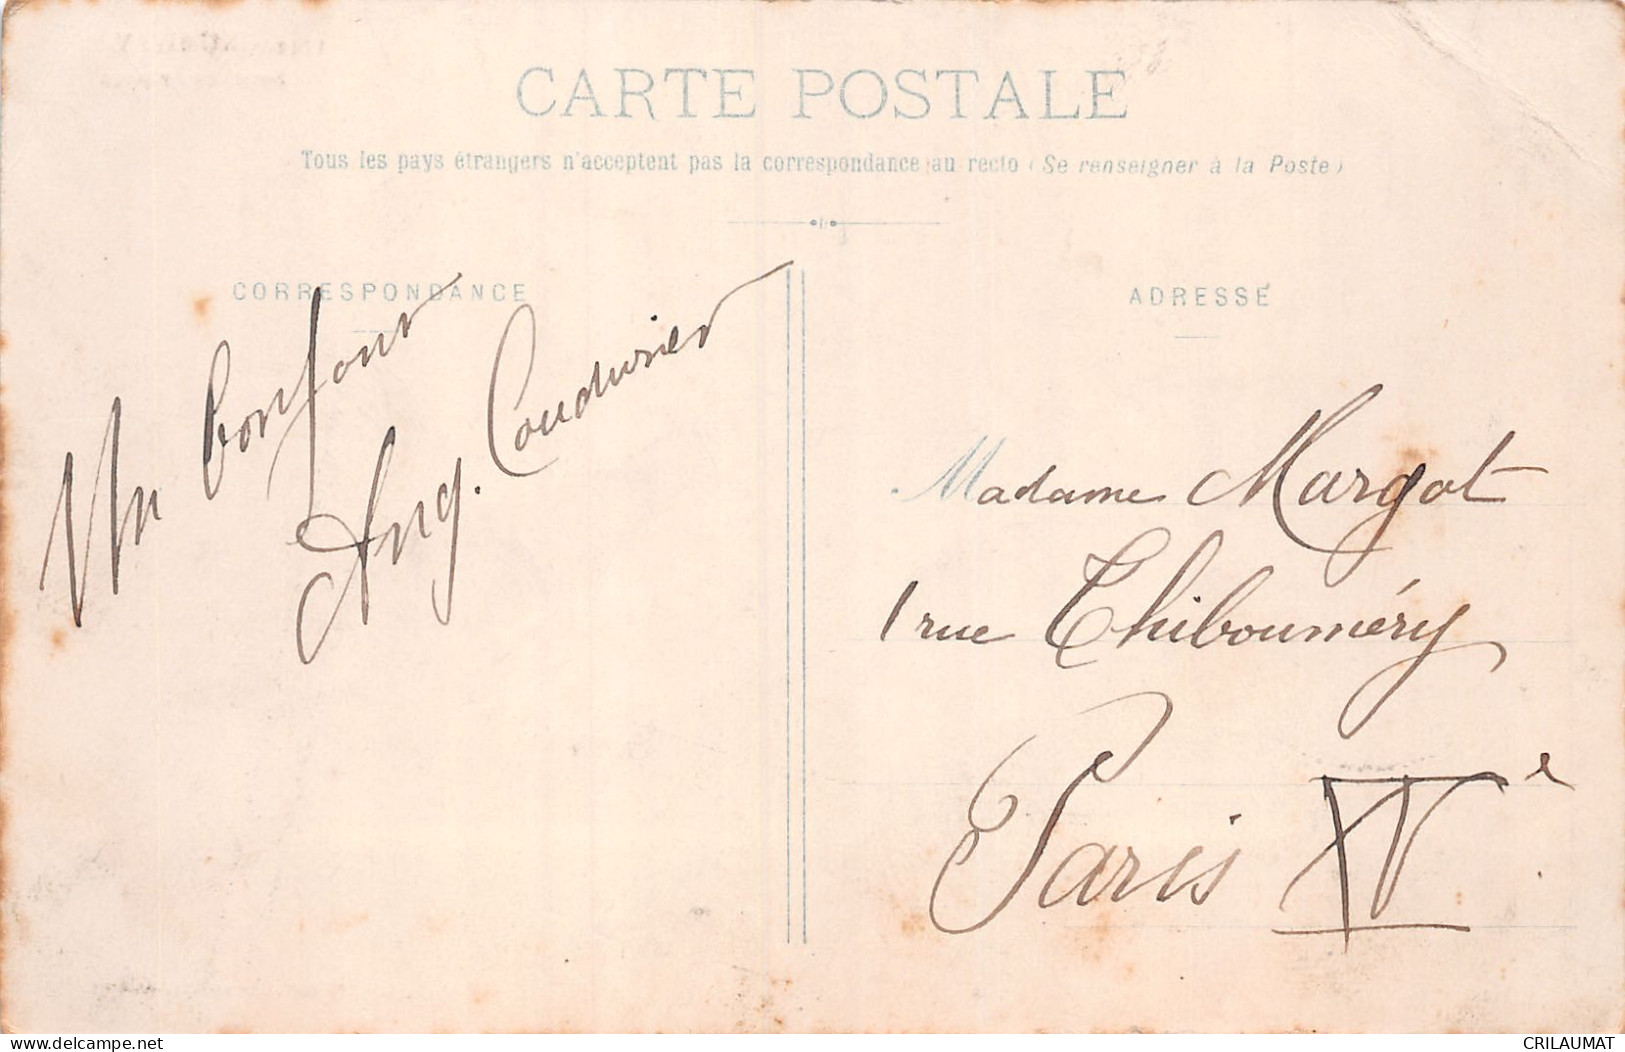 CARTE POSTALE
Tous les pays étrangers n'acceptent pas la correspondance au recto (Se renseigner à la Poste)
CORRESPONDANCE
Un bonjour
Ang. Coudurier
ADRESSE
Madame Margot
1 rue Thibouméry
Paris XVe
delcampe.net
CRILAUMAT